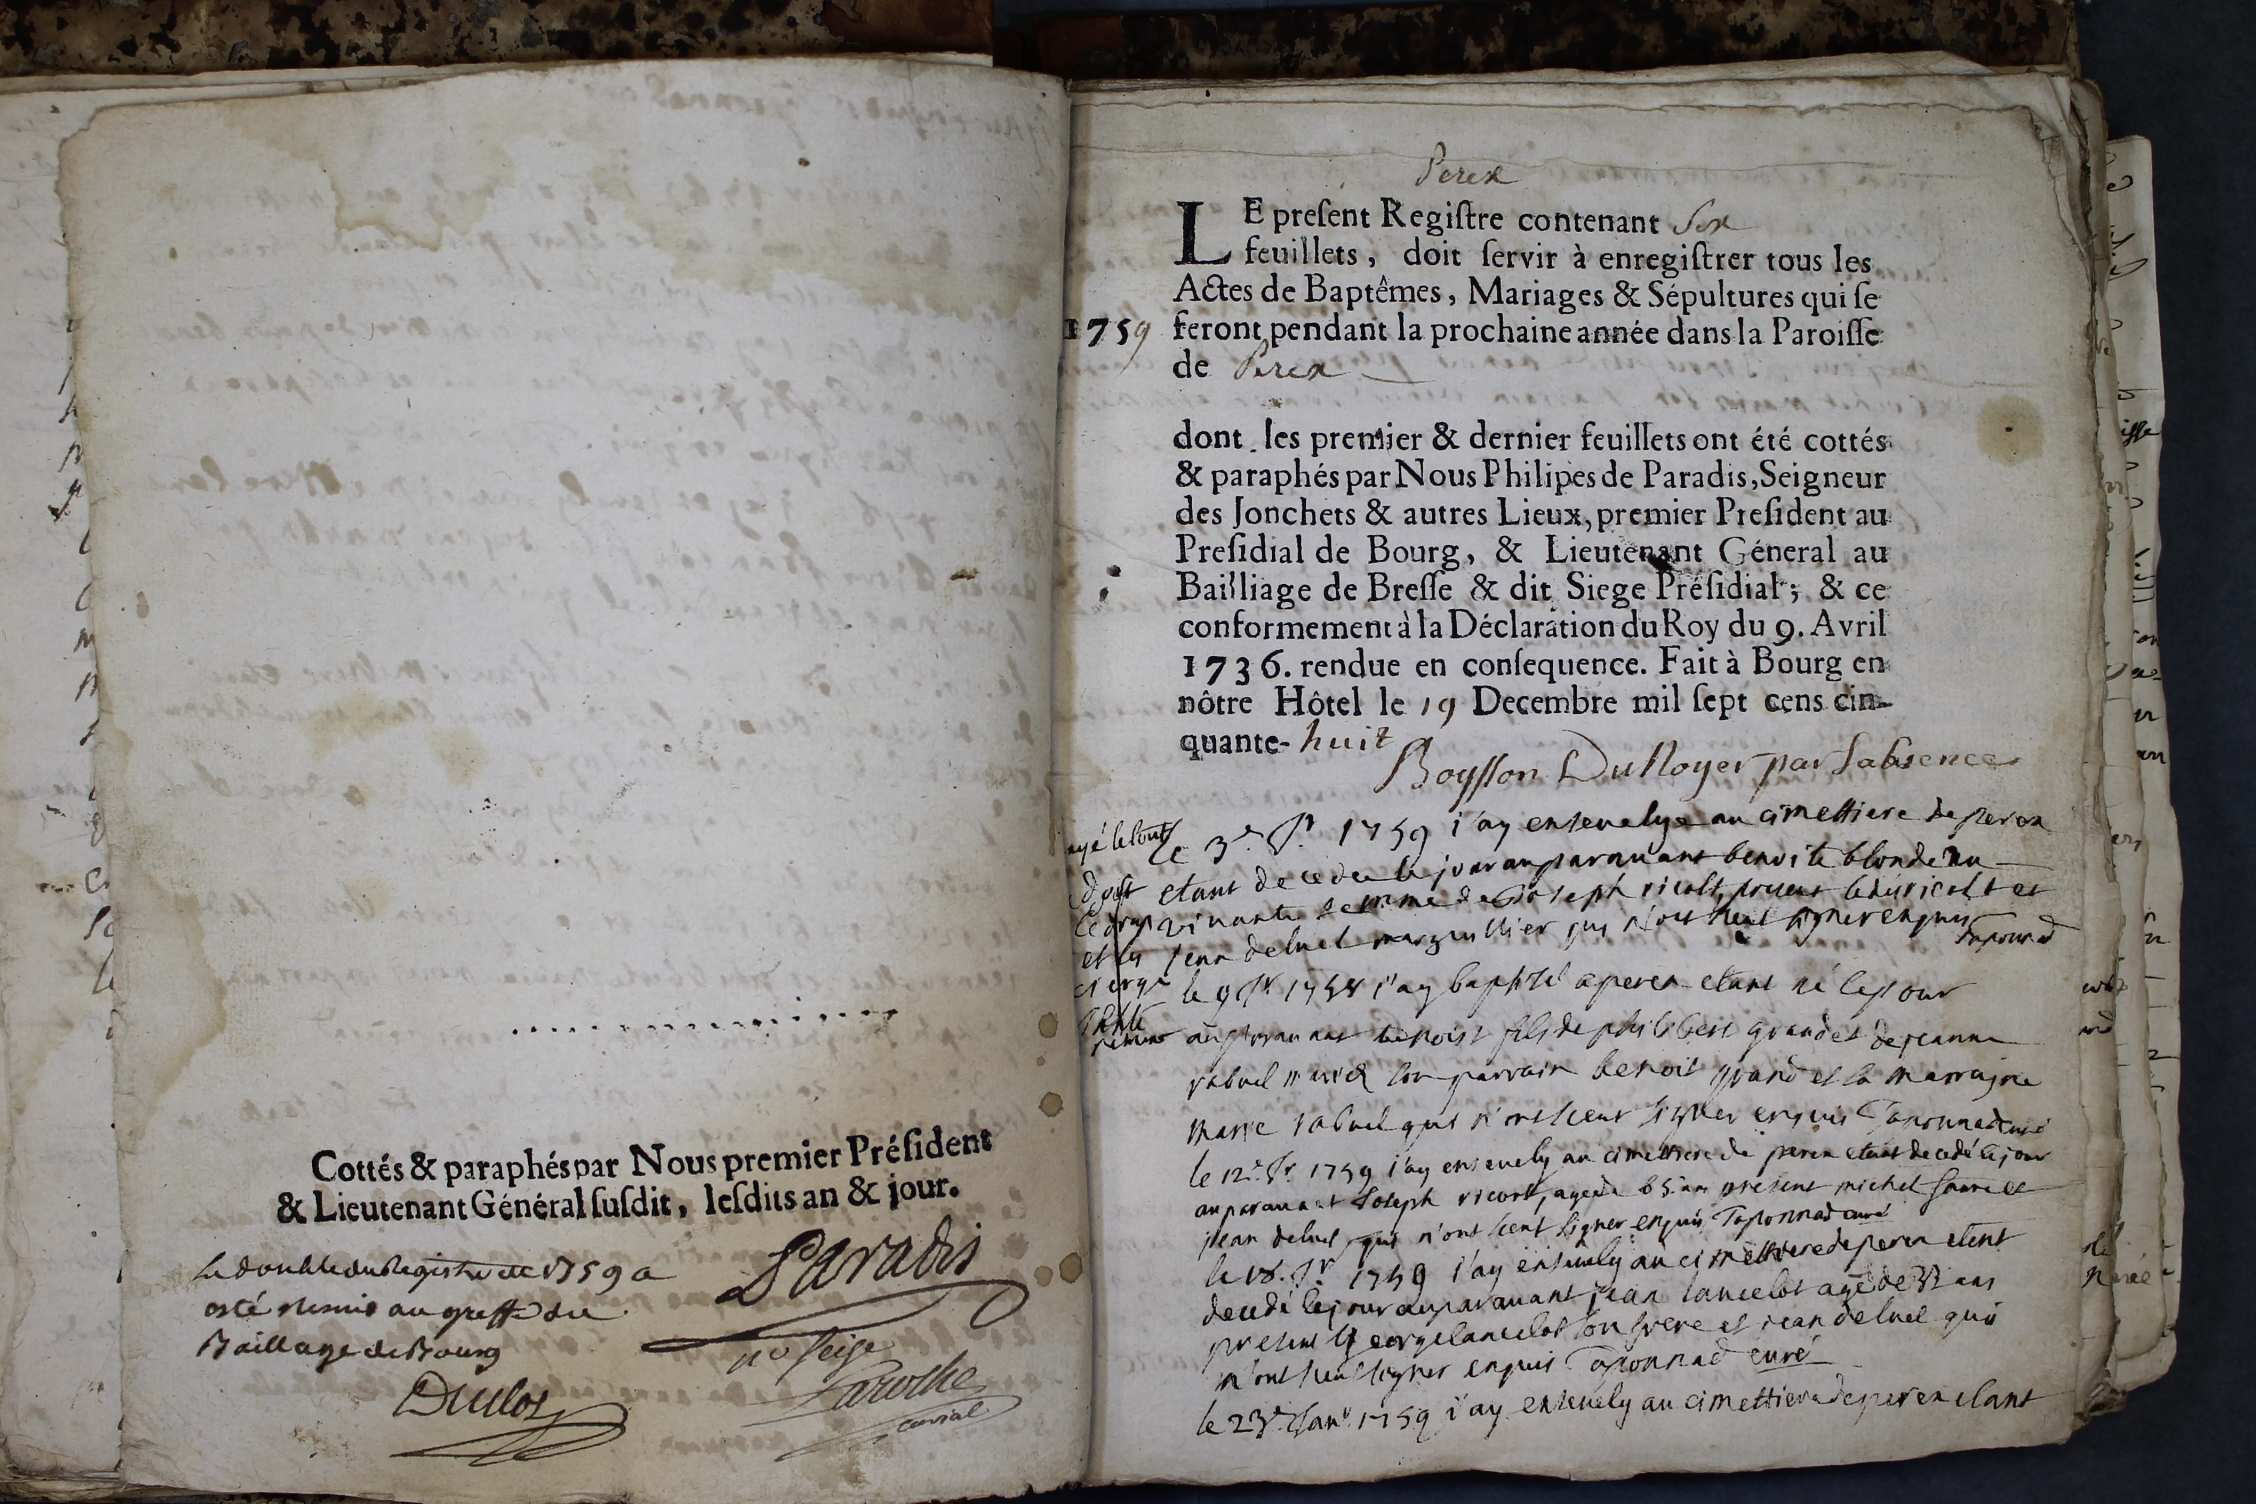 Cottés & paraphés par Nous premier Préſident
& Lieutenant Général ſuſdit, leſdits an & jour.
Le double du Registre de 1759 a
esté remis au greffe du
Baillage de Bourg
Duclos
Paradis
Laroche
Perex
LE preſent Regiſtre contenant Six
feuillets, doit ſervir à enregiſtrer tous les
Actes de Baptêmes, Mariages & Sépultures qui ſe
1759
feront pendant la prochaine année dans la Paroiſſe
de Perex
dont les premier & dernier feuillets ont été cottés
& paraphés par Nous Philipes de Paradis, Seigneur
des Jonchets & autres Lieux, premier Preſident au
Preſidial de Bourg, & Lieutenant Géneral au
Bailliage de Breſſe & dit Siege Préſidial; & ce
conformement à la Déclaration du Roy du 9. Avril
1736. rendue en conſequence. Fait à Bourg en
nôtre Hôtel le 19 Decembre mil ſept cens cin-
quante-huit
Boysson DuNoyer par l'absence
le 3e Jr 1759 j'ay ensevely au cimettiere de perex
etant decedee le jour auparavant benoite blondeau
femme de Joseph ricolt, present et
jean deluel marguillier qui n'ont sceut signer enquis
Taponnad
le 9 Jr 1758 j'ay baptisé a perex etant né le jour
auparavant benoist fils de philibert grand et de jeanne
rabuel mariez son parrain benoit grand et la marraine
marie rabuel qui n'ont sceut signer enquis Taponnad curé
le 12e Jr 1759 j'ay ensevely au cimettiere de perex etant decedé le jour
auparavant Joseph ricort, agé de 65 ans present michel et
jean deluel, qui n'ont sceut signer enquis Taponnad curé
le 18. Jr 1759 j'ay ensevely au cimettiere de perex etent
decedé le jour auparavant jean lancelot agé de ans
present george lancelot son frere et jean deluel qui
n'ont sceut signer enquis Taponnad curé
le 23e Janv 1759 j'ay ensevely au cimettiere de perex etant